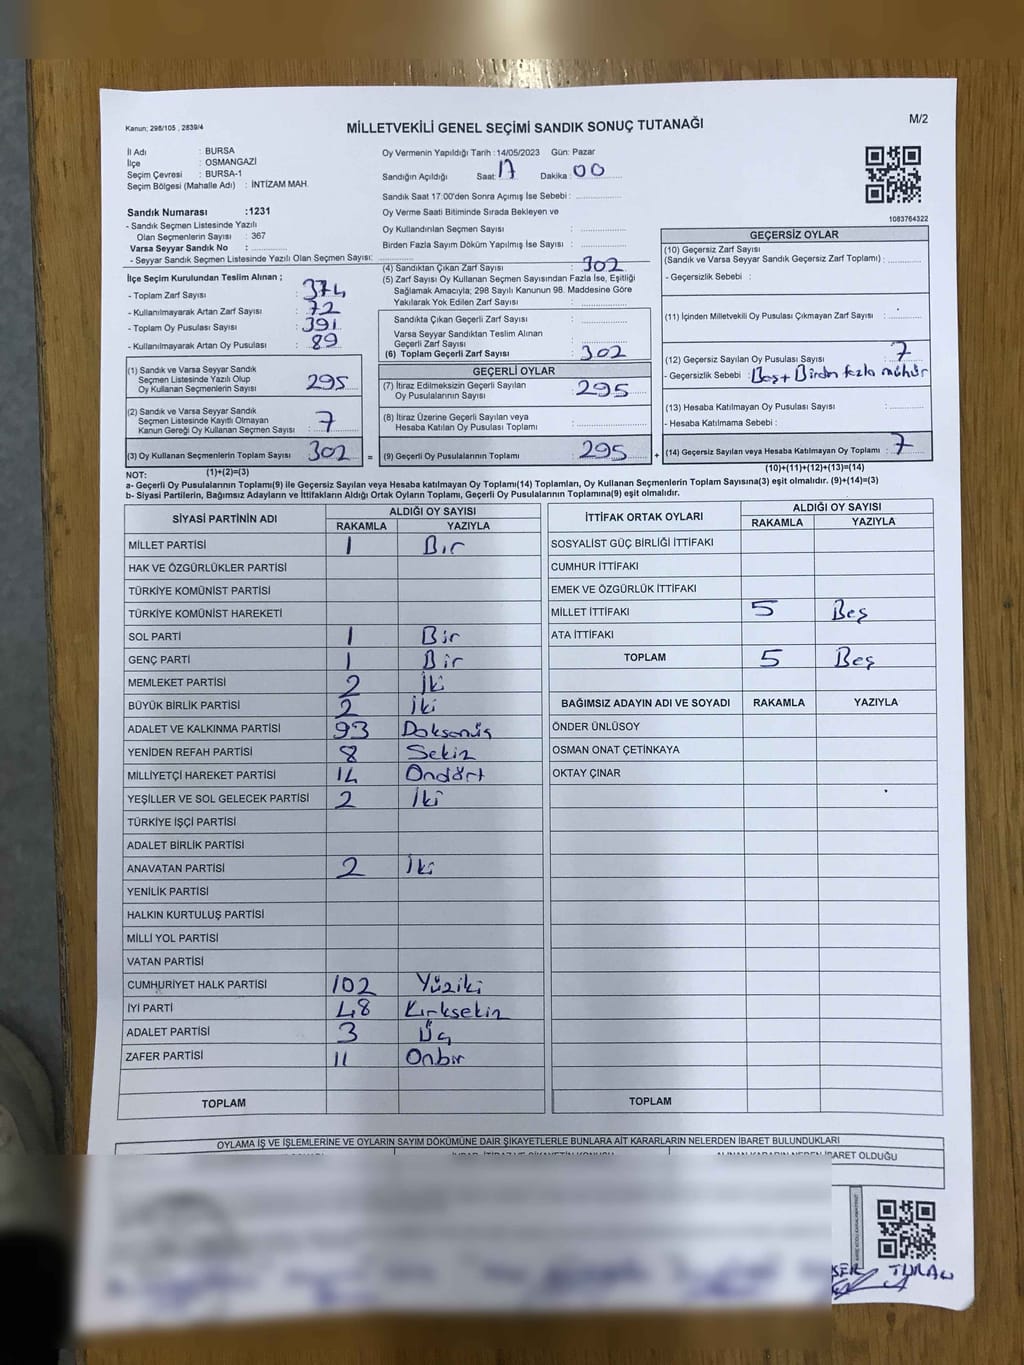 Kanun; 298/105 , 2839/4
MİLLETVEKİLİ GENEL SEÇİMİ SANDIK SONUÇ TUTANAĞI
M/2
İl Adı : BURSA
İlçe : OSMANGAZİ
Seçim Çevresi : BURSA-1
Seçim Bölgesi (Mahalle Adı) : İNTİZAM MAH.
Sandık Numarası :1231
- Sandık Seçmen Listesinde Yazılı
Olan Seçmenlerin Sayısı : 367
Varsa Seyyar Sandık No : ............
- Seyyar Sandık Seçmen Listesinde Yazılı Olan Seçmen Sayısı: ............
Oy Vermenin Yapıldığı Tarih : 14/05/2023 Gün: Pazar
Sandığın Açıldığı Saat: 17 Dakika: 00
Sandık Saat 17:00'den Sonra Açımış İse Sebebi : ............
Oy Verme Saati Bitiminde Sırada Bekleyen ve
Oy Kullandırılan Seçmen Sayısı : ............
Birden Fazla Sayım Döküm Yapılmış İse Sayısı : ............
1083764322
İlçe Seçim Kurulundan Teslim Alınan ;
- Toplam Zarf Sayısı : 374
- Kullanılmayarak Artan Zarf Sayısı : 72
- Toplam Oy Pusulası Sayısı : 391
- Kullanılmayarak Artan Oy Pusulası : 89
(1) Sandık ve Varsa Seyyar Sandık
Seçmen Listesinde Yazılı Olup
Oy Kullanan Seçmenlerin Sayısı : 295
(2) Sandık ve Varsa Seyyar Sandık
Seçmen Listesinde Kayıtlı Olmayan
Kanun Gereği Oy Kullanan Seçmen Sayısı : 7
(3) Oy Kullanan Seçmenlerin Toplam Sayısı : 302
(1)+(2)=(3)
(4) Sandıktan Çıkan Zarf Sayısı : 302
(5) Zarf Sayısı Oy Kullanan Seçmen Sayısından Fazla İse, Eşitliği
Sağlamak Amacıyla; 298 Sayılı Kanunun 98. Maddesine Göre
Yakılarak Yok Edilen Zarf Sayısı : ............
Sandıkta Çıkan Geçerli Zarf Sayısı : ............
Varsa Seyyar Sandıktan Teslim Alınan
Geçerli Zarf Sayısı : ............
(6) Toplam Geçerli Zarf Sayısı : 302
GEÇERLİ OYLAR
(7) İtiraz Edilmeksizin Geçerli Sayılan
Oy Pusulalarının Sayısı : 295
(8) İtiraz Üzerine Geçerli Sayılan veya
Hesaba Katılan Oy Pusulası Toplamı : ............
= (9) Geçerli Oy Pusulalarının Toplamı : 295 +
GEÇERSİZ OYLAR
(10) Geçersiz Zarf Sayısı
(Sandık ve Varsa Seyyar Sandık Geçersiz Zarf Toplamı) : ............
- Geçersizlik Sebebi :
(11) İçinden Milletvekili Oy Pusulası Çıkmayan Zarf Sayısı : ............
(12) Geçersiz Sayılan Oy Pusulası Sayısı : 7
- Geçersizlik Sebebi : Boş + Birden fazla mühür
(13) Hesaba Katılmayan Oy Pusulası Sayısı : ............
- Hesaba Katılmama Sebebi :
(14) Geçersiz Sayılan veya Hesaba Katılmayan Oy Toplamı : 7
(10)+(11)+(12)+(13)=(14)
NOT:
a- Geçerli Oy Pusulalarının Toplamı(9) ile Geçersiz Sayılan veya Hesaba katılmayan Oy Toplamı(14) Toplamları, Oy Kullanan Seçmenlerin Toplam Sayısına(3) eşit olmalıdır. (9)+(14)=(3)
b- Siyasi Partilerin, Bağımsız Adayların ve İttifakların Aldığı Ortak Oyların Toplamı, Geçerli Oy Pusulalarının Toplamına(9) eşit olmalıdır.
SİYASİ PARTİNİN ADI ALDIĞI OY SAYISI
RAKAMLA YAZIYLA
MİLLET PARTİSİ 1 Bir
HAK VE ÖZGÜRLÜKLER PARTİSİ
TÜRKİYE KOMÜNİST PARTİSİ
TÜRKİYE KOMÜNİST HAREKETİ
SOL PARTİ 1 Bir
GENÇ PARTİ 1 Bir
MEMLEKET PARTİSİ 2 İki
BÜYÜK BİRLİK PARTİSİ 2 İki
ADALET VE KALKINMA PARTİSİ 93 Doksanüç
YENİDEN REFAH PARTİSİ 8 Sekiz
MİLLİYETÇİ HAREKET PARTİSİ 14 Ondört
YEŞİLLER VE SOL GELECEK PARTİSİ 2 İki
TÜRKİYE İŞÇİ PARTİSİ
ADALET BİRLİK PARTİSİ
ANAVATAN PARTİSİ 2 İki
YENİLİK PARTİSİ
HALKIN KURTULUŞ PARTİSİ
MİLLİ YOL PARTİSİ
VATAN PARTİSİ
CUMHURİYET HALK PARTİSİ 102 Yüziki
İYİ PARTİ 48 Kırksekiz
ADALET PARTİSİ 3 Üç
ZAFER PARTİSİ 11 Onbir
TOPLAM
İTTİFAK ORTAK OYLARI ALDIĞI OY SAYISI
RAKAMLA YAZIYLA
SOSYALİST GÜÇ BİRLİĞİ İTTİFAKI
CUMHUR İTTİFAKI
EMEK VE ÖZGÜRLÜK İTTİFAKI
MİLLET İTTİFAKI 5 Beş
ATA İTTİFAKI
TOPLAM 5 Beş
BAĞIMSIZ ADAYIN ADI VE SOYADI RAKAMLA YAZIYLA
ÖNDER ÜNLÜSOY
OSMAN ONAT ÇETİNKAYA
OKTAY ÇINAR
TOPLAM
OYLAMA İŞ VE İŞLEMLERİNE VE OYLARIN SAYIM DÖKÜMÜNE DAİR ŞİKAYETLERLE BUNLARA AİT KARARLARIN NELERDEN İBARET BULUNDUKLARI
İBARET OLDUĞU
TURAN